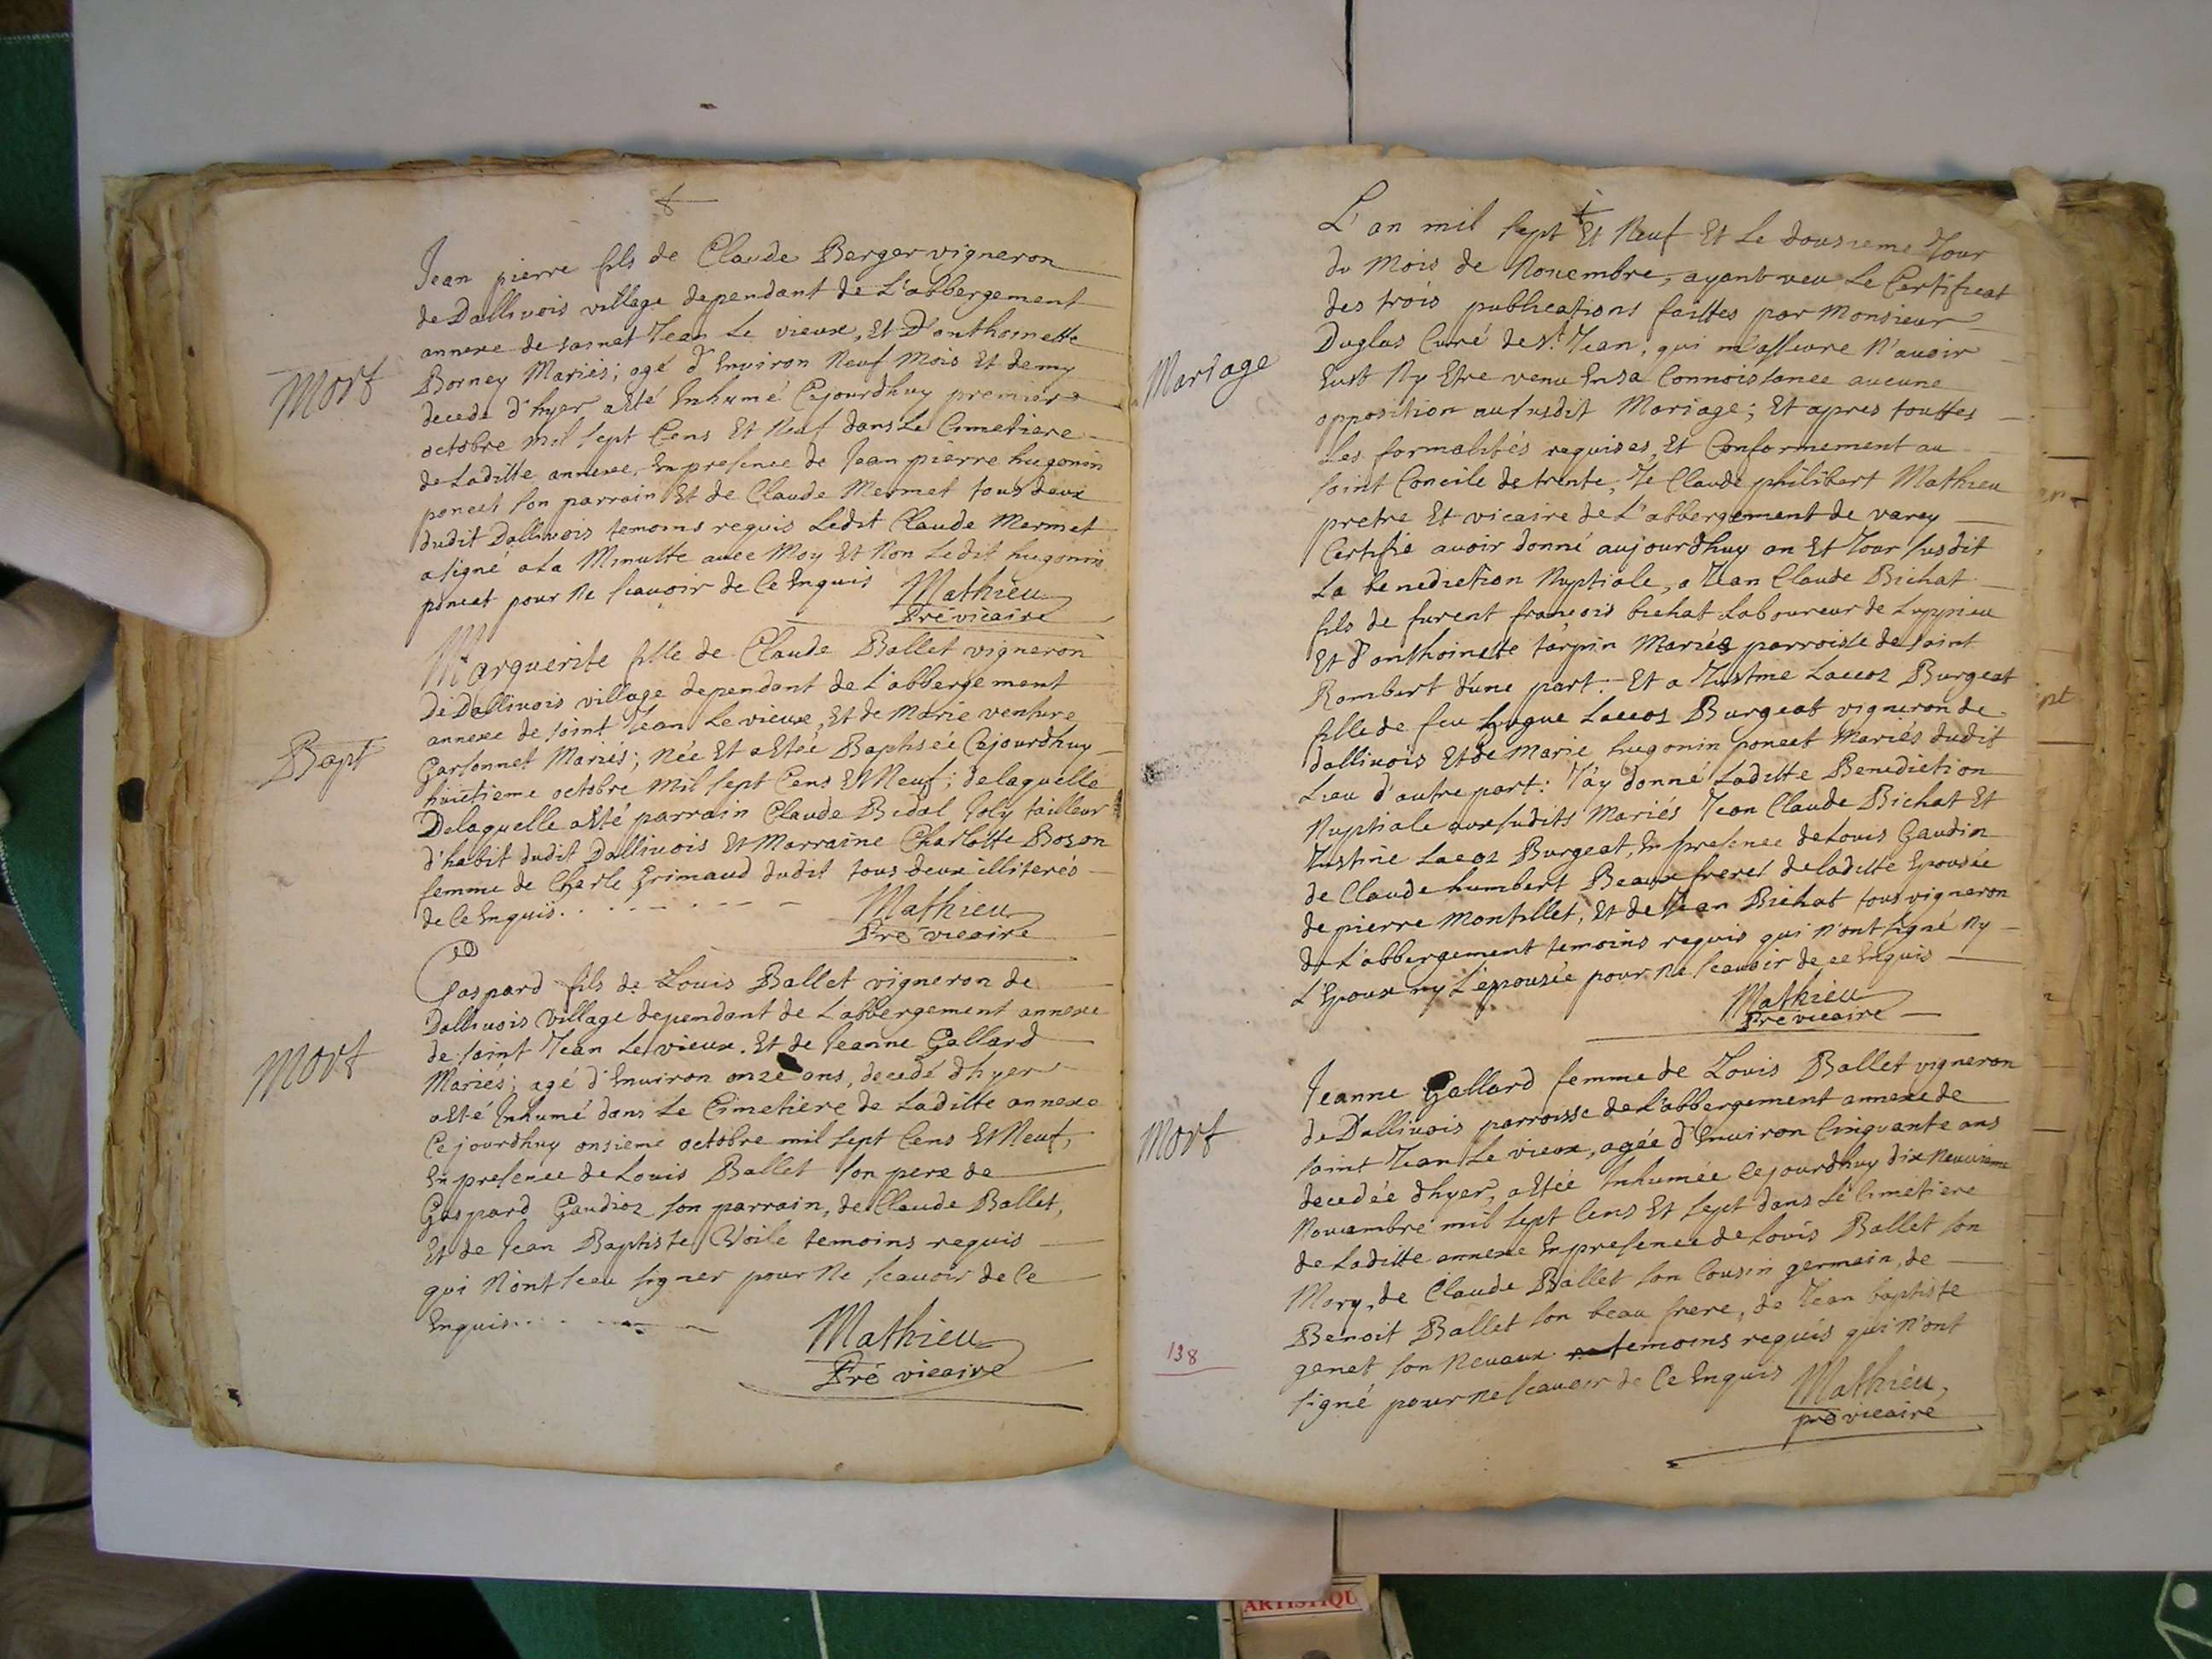 Mort
Jean pierre fils de Claude Berger vigneron
de Dallivois village dependant de L'abbergement
annexe de sainct Jean Le vieux, Et D'anthoinette
Borney Mariés; agé d'Environ Neuf Mois Et demy
decede d'hyer a esté Inhumé Cejourdhuy premier
octobre mil sept Cens Et Neuf dans Le Cimetiere
de Laditte annexe, En presence de Jean pierre hugonin
poncet son parrain Et de Claude Mermet tous deux
dudit Dallivois temoins requis Ledit Claude Mermet
a signé a La Minutte avec Moy Et Non Ledit hugonin
poncet pour Ne scavoir de Ce Enquis Mathieu
Pre vicaire
Bapt
Marguerite fille de Claude Ballet vigneron
De Dallivois village dependant de L'abbergement
annexe de saint Jean Le vieux, Et de Marie venture
Garsonnet Mariés; Née Et a Esteé Baptisée Cejourdhuy
huictieme octobre Mil sept Cens Et Neuf; delaquelle
Delaquelle a Esté parrain Claude Bidal Joly tailleur
d'habit dudit Dallivois Et Marraine Charlotte Boson
femme de Charle Grimaud dudit tous deux illiterés
de Ce Enquis. Mathieu
Pre vicaire
Mort
Gaspard fils de Louis Ballet vigneron de
Dallivois village dependant de L'abbergement annexe
de saint Jean Le vieux. Et de Jeanne Gallard
Mariés; agé d'Environ onze ans, decedé dhyer
a Esté Inhumé dans Le Cimetiere de Laditte annexe
Cejourdhuy onsieme octobre mil sept Cens Et Neuf,
En presence de Louis Ballet son pere de
Gaspard Gaudioz son parrain, de Claude Ballet,
Et de Jean Baptiste Voile temoins requis
qui N'ont sceu signer pour Ne scavoir de Ce
Enquis. Mathieu
Pre vicaire
Mariage
L'an mil sept Et Neuf Et Le dousieme Jour
du Mois de Novembre, ayant veu Le Certificat
des trois publications faittes par Monsieur
Duglas Curé de St. Jean, qui m'asseure N'avoir
Eust Ny Etre venu En sa Connoissance aucune
opposition au susdit Mariage; Et apres touttes
Les formalités requises, Et Conformement au
saint Concile de trente, Je Claude philibert Mathieu
pretre Et vicaire de L'abbergement de varey
Certifie avoir donné aujourdhuy an Et Jour susdit
La benediction Nuptiale, a Jean Claude Bichat
fils de furent françois bichat Laboureur de Luppieu
Et d'anthoinette tarpin Mariés parroisse de saint
Rambert d'une part. Et a Justine Laccoz Burgeat
fille de feu hugue Laccoz Burgeat vigneron de
dallivois Et de Marie hugonin poncet Mariés dudit
Lieu d'autre part: J'ay donné Laditte Benediction
Nuptiale aux sudits Mariés Jean Claude Bichat Et
Justine Lacoz Burgeat, En presence de Louis Gaudioz
de Claude humbert Beaux freres de laditte Epousée
de pierre Montillet, Et de Jean Bichat tous vigneron
de L'abbergement temoins requis qui n'ont signé Ny
L'Epoux ny L'epousée pour Ne scavoir de ce Enquis
Mathieu
Pre vicaire
Mort
Jeanne Gallard femme de Louis Ballet vigneron
de Dallivois parroisse de L'abbergement annexe de
saint Jean Le vieux, agée d'Environ Cinquante ans
decedée dhyer, a Esteé Inhumée Cejourdhuy dix Neuvieme
Novambre mil sept Cens Et sept dans Le Cimetiere
de Laditte annexe En presence de Louis Ballet son
Mary, de Claude Ballet son Cousin germain, de
Benoit Ballet son beau frere, de Jean baptiste
genet son Nevaux temoins requis qui n'ont
signé pour ne scavoir de Ce Enquis Mathieu,
pre vicaire
138
ARTISTIQU